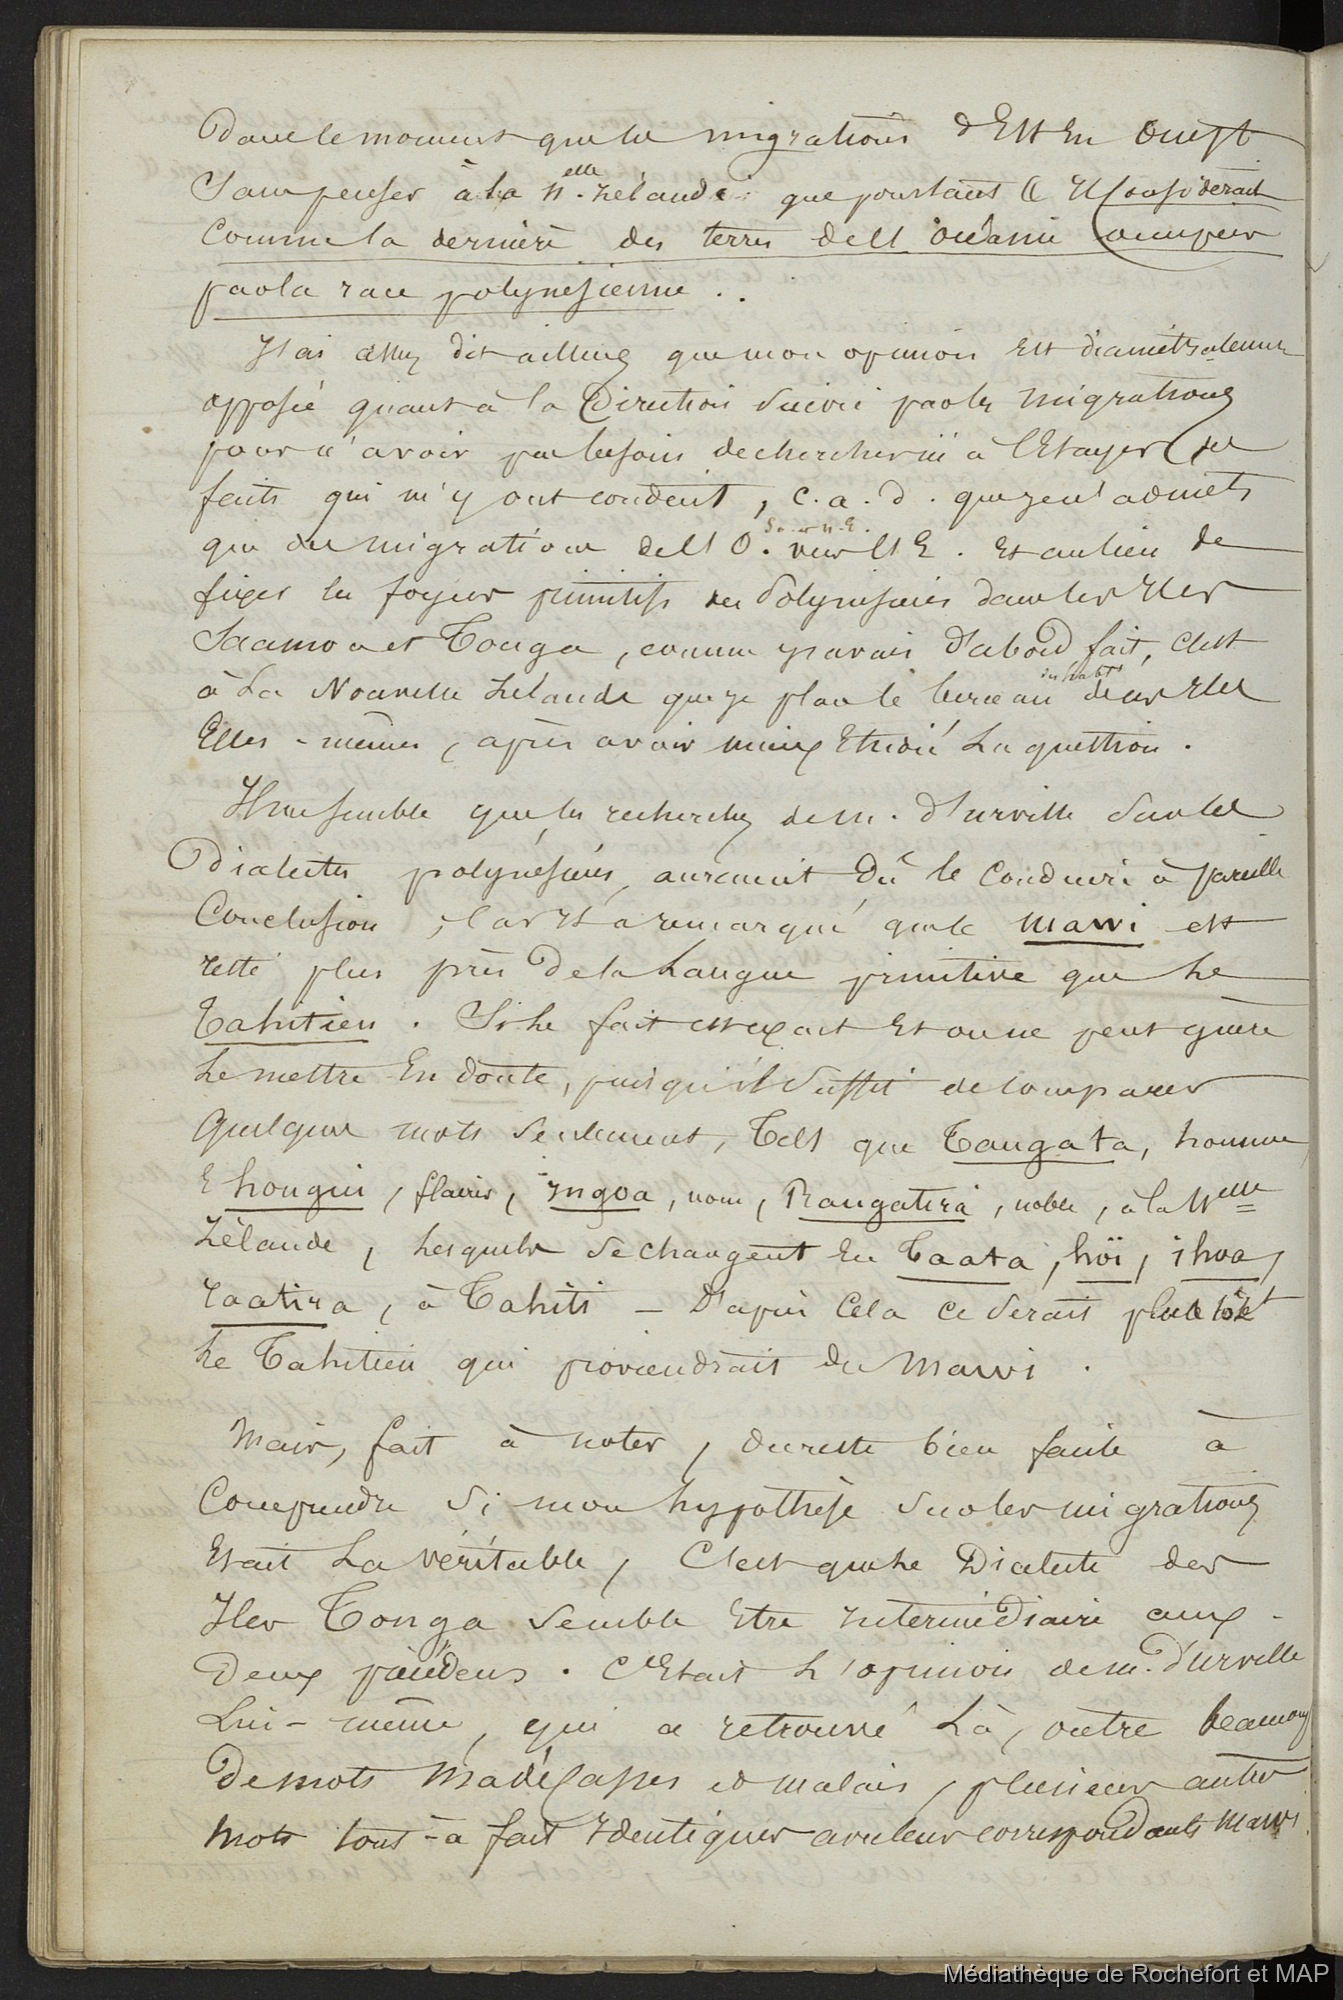 Dans le moment que les migrations d'Est en Ouest
Sans penser à la Nelle Zélande que pourtant il considérait
Comme la dernière des terres de l'Océanie occupées
par la race polynésienne.
J'ai assez dit ailleurs que mon opinion est diamétralement
opposée quant à la Direction suivie par les migrations
pour n'avoir pas besoin de chercher ici à l'Etayer des
faits qui m'y ont conduit, c.a.d. que je n'admets
que des migrations de l'O. vers l'E. Et au lieu de
So. er N.E.
fixer les foyers primitifs des Polynésiens dans les Iles
Saamoa et Tonga, comme j'avais d'abord fait, c'est
à la Nouvelle Zélande que je place le berceau des habts de ces Iles
Elles-mêmes, après avoir mieux Etudié la question.
Il me semble que les recherches de M. d'Urville sur les
Dialectes polynésiens, auraient dû le Conduire à pareille
Conclusion, car il a remarqué que le mawi est
resté plus près de la Langue primitive que le
Tahitien. Si le fait est exact Et on ne peut guère
le mettre En doute, puisqu'il suffit de comparer
Quelques mots seulement, Tels que Tangata, homme,
E hongui, flairer, Ingoa, nom, Rangatira, noble, à la Nelle
Zélande, lesquels se changent En Taata, hoï, ihoa,
raatira, à Tahiti — D'après Cela ce serait plutôt
le Tahitien qui proviendrait du Mawi.
Mais, fait à noter, du reste bien facile à
Comprendre si mon hypothèse sur les migrations
Etait la véritable, C'est que le Dialecte des
Iles Tonga semble Etre Intermédiaire aux
Deux précédens. C'Etait l'opinion de M. d'Urville
Lui-même, qui a retrouvé là, outre beaucoup
De mots Madécasses et malais, plusieurs autres
Mots tout-à fait Identiques avec leurs correspondants Mawi.
Médiathèque de Rochefort et MAP